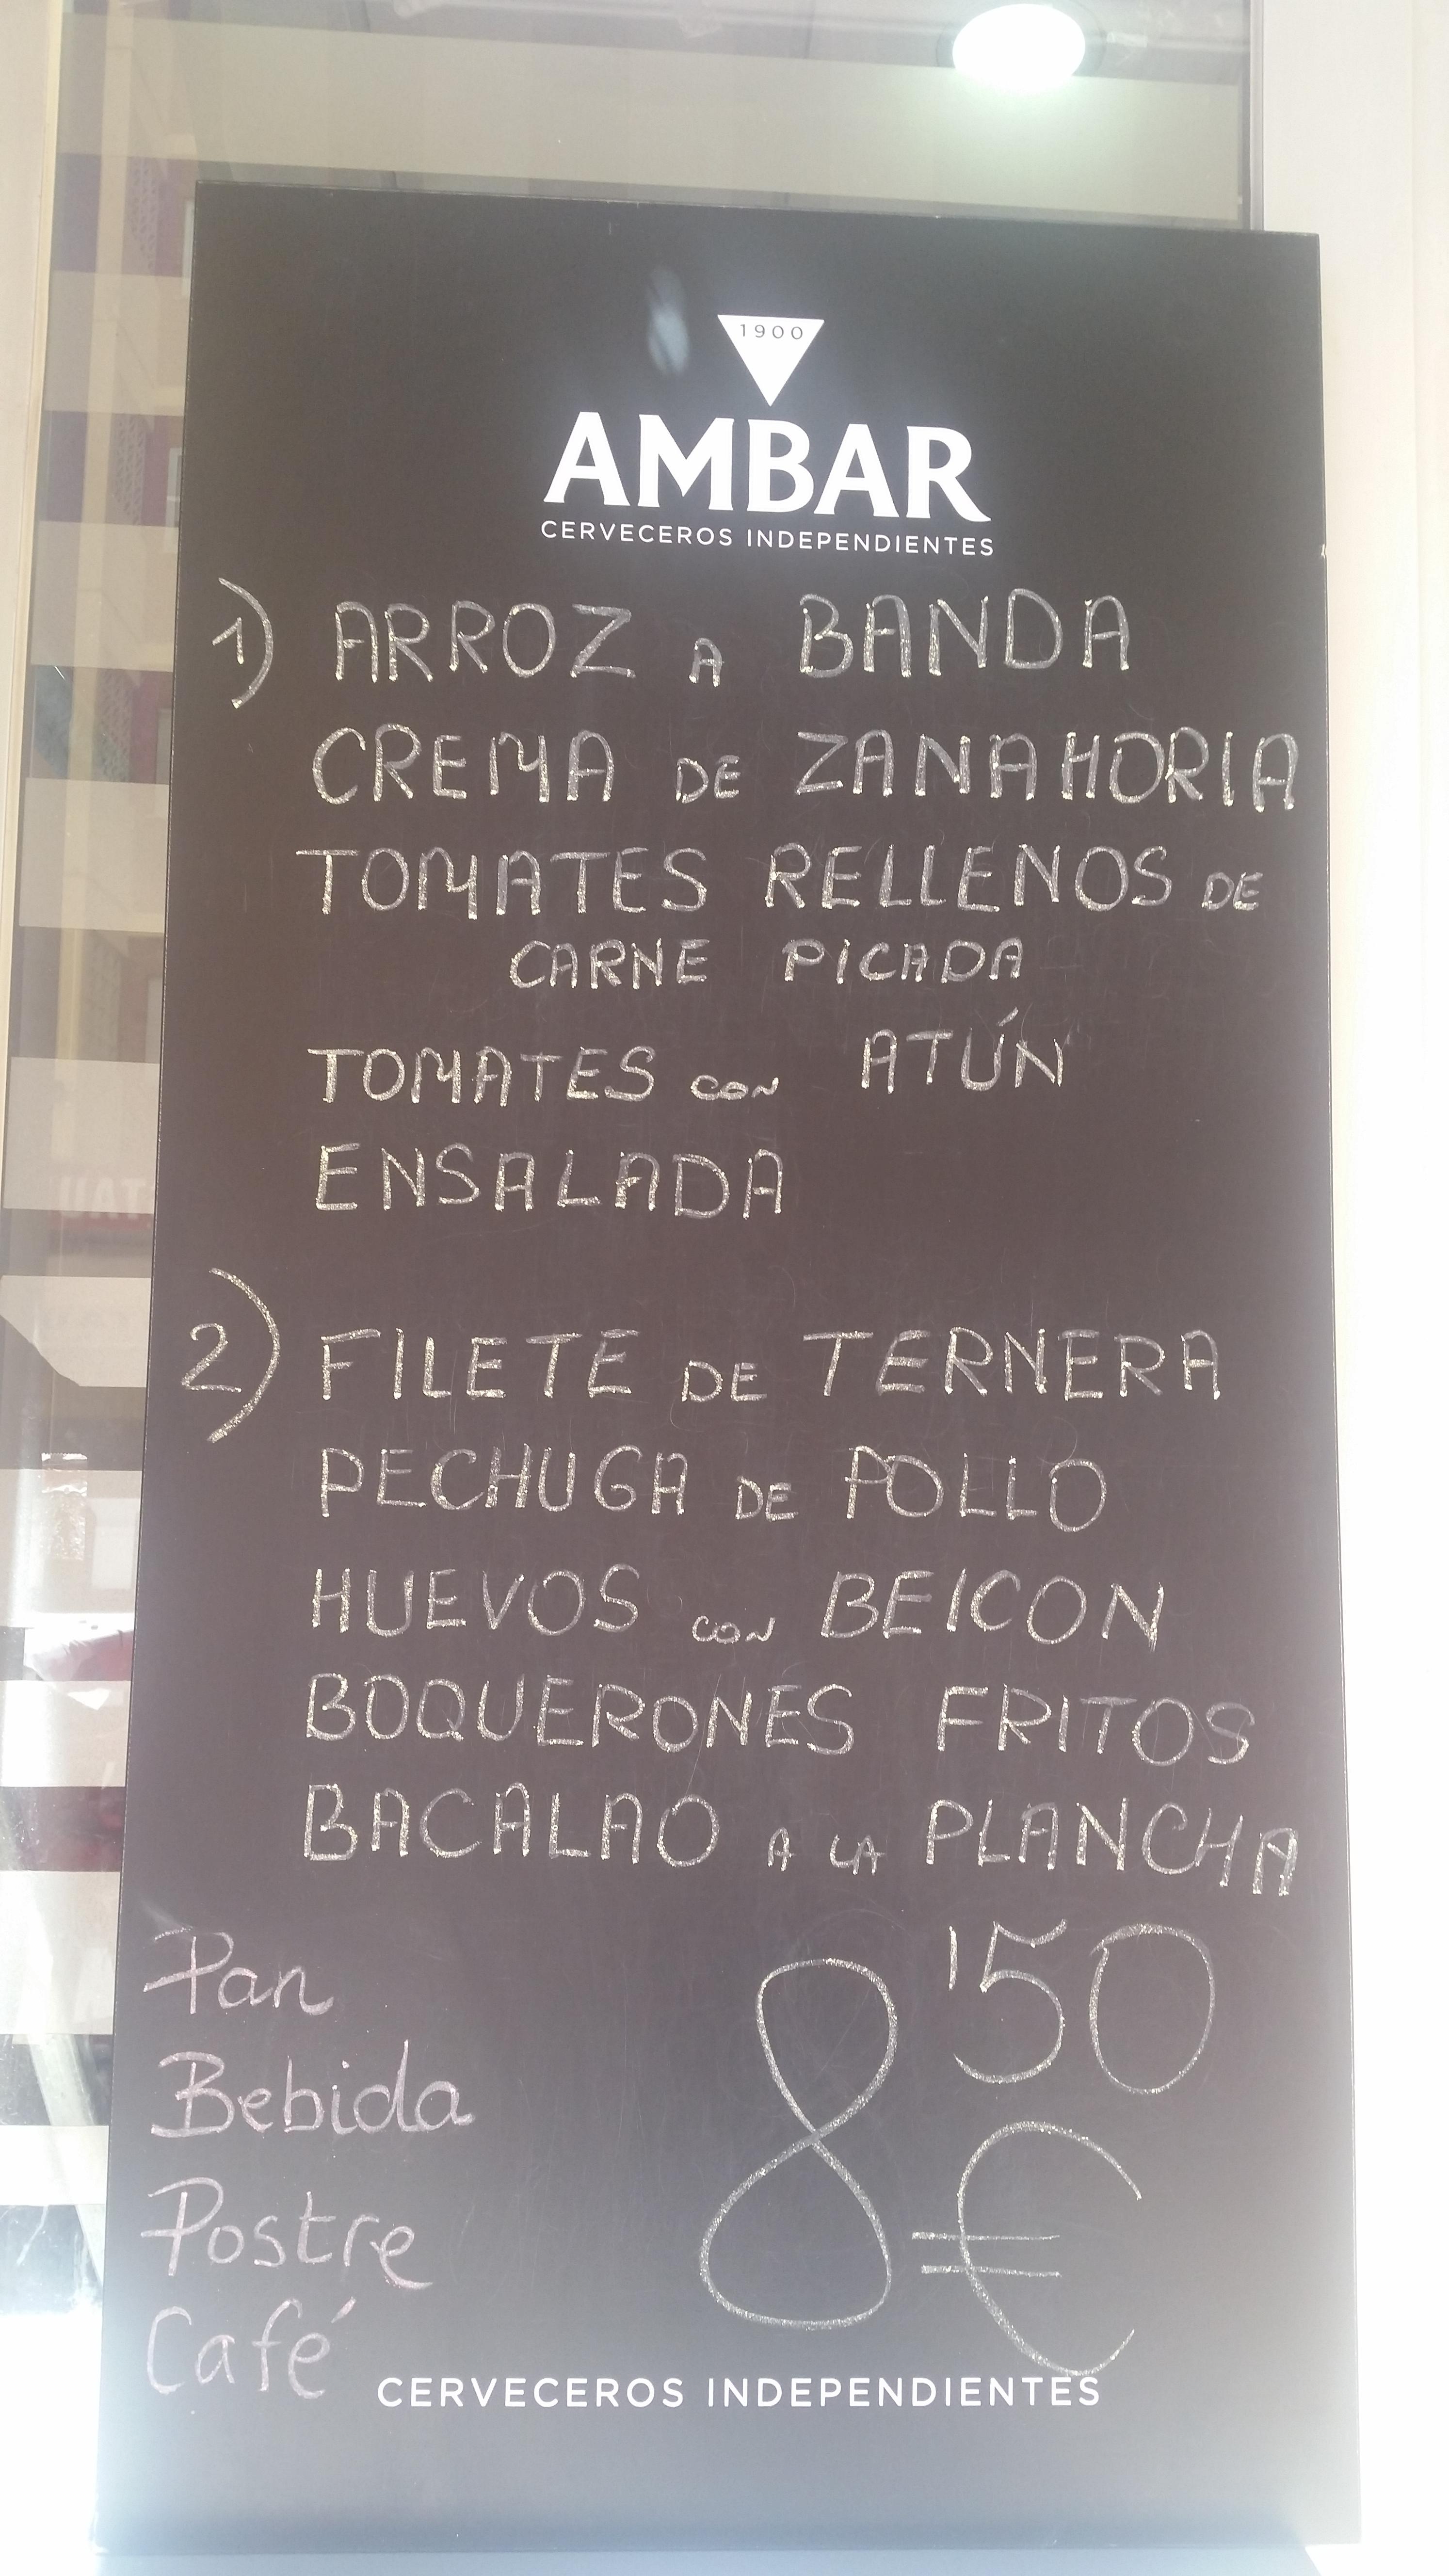 1900
AMBAR
CERVECEROS INDEPENDIENTES
1) ARROZ A BANDA
CREMA DE ZANAHORIA
TOMATES RELLENOS DE
CARNE PICADA
TOMATES con ATÚN
ENSALADA
2) FILETE DE TERNERA
PECHUGA DE POLLO
HUEVOS con BEICON
BOQUERONES FRITOS
BACALAO A LA PLANCHA
Pan
Bebida
Postre
Café
8'50
€
CERVECEROS INDEPENDIENTES